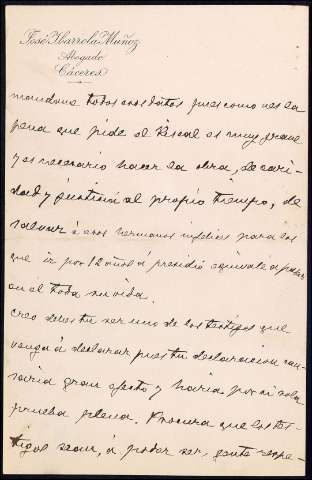 José Ibarrola Muñoz
Abogado
Cáceres
mandame todos esos datos pues como ves la
pena que pide el Fiscal es muy grave
y es necesario hacer la obra, de cari-
dad y justicia al propio tiempo, de
salvar á esos hermanos infelices para los
que ir por 12 años á presidio equivale a pasar
en el toda su vida.
Creo debes tu ser uno de los testigos que
venga á declarar pues tu declaracion cau-
saria gran efecto y haria por si sola
prueba plena. Procura que los tes-
tigos sean, á poder ser, gente respe-